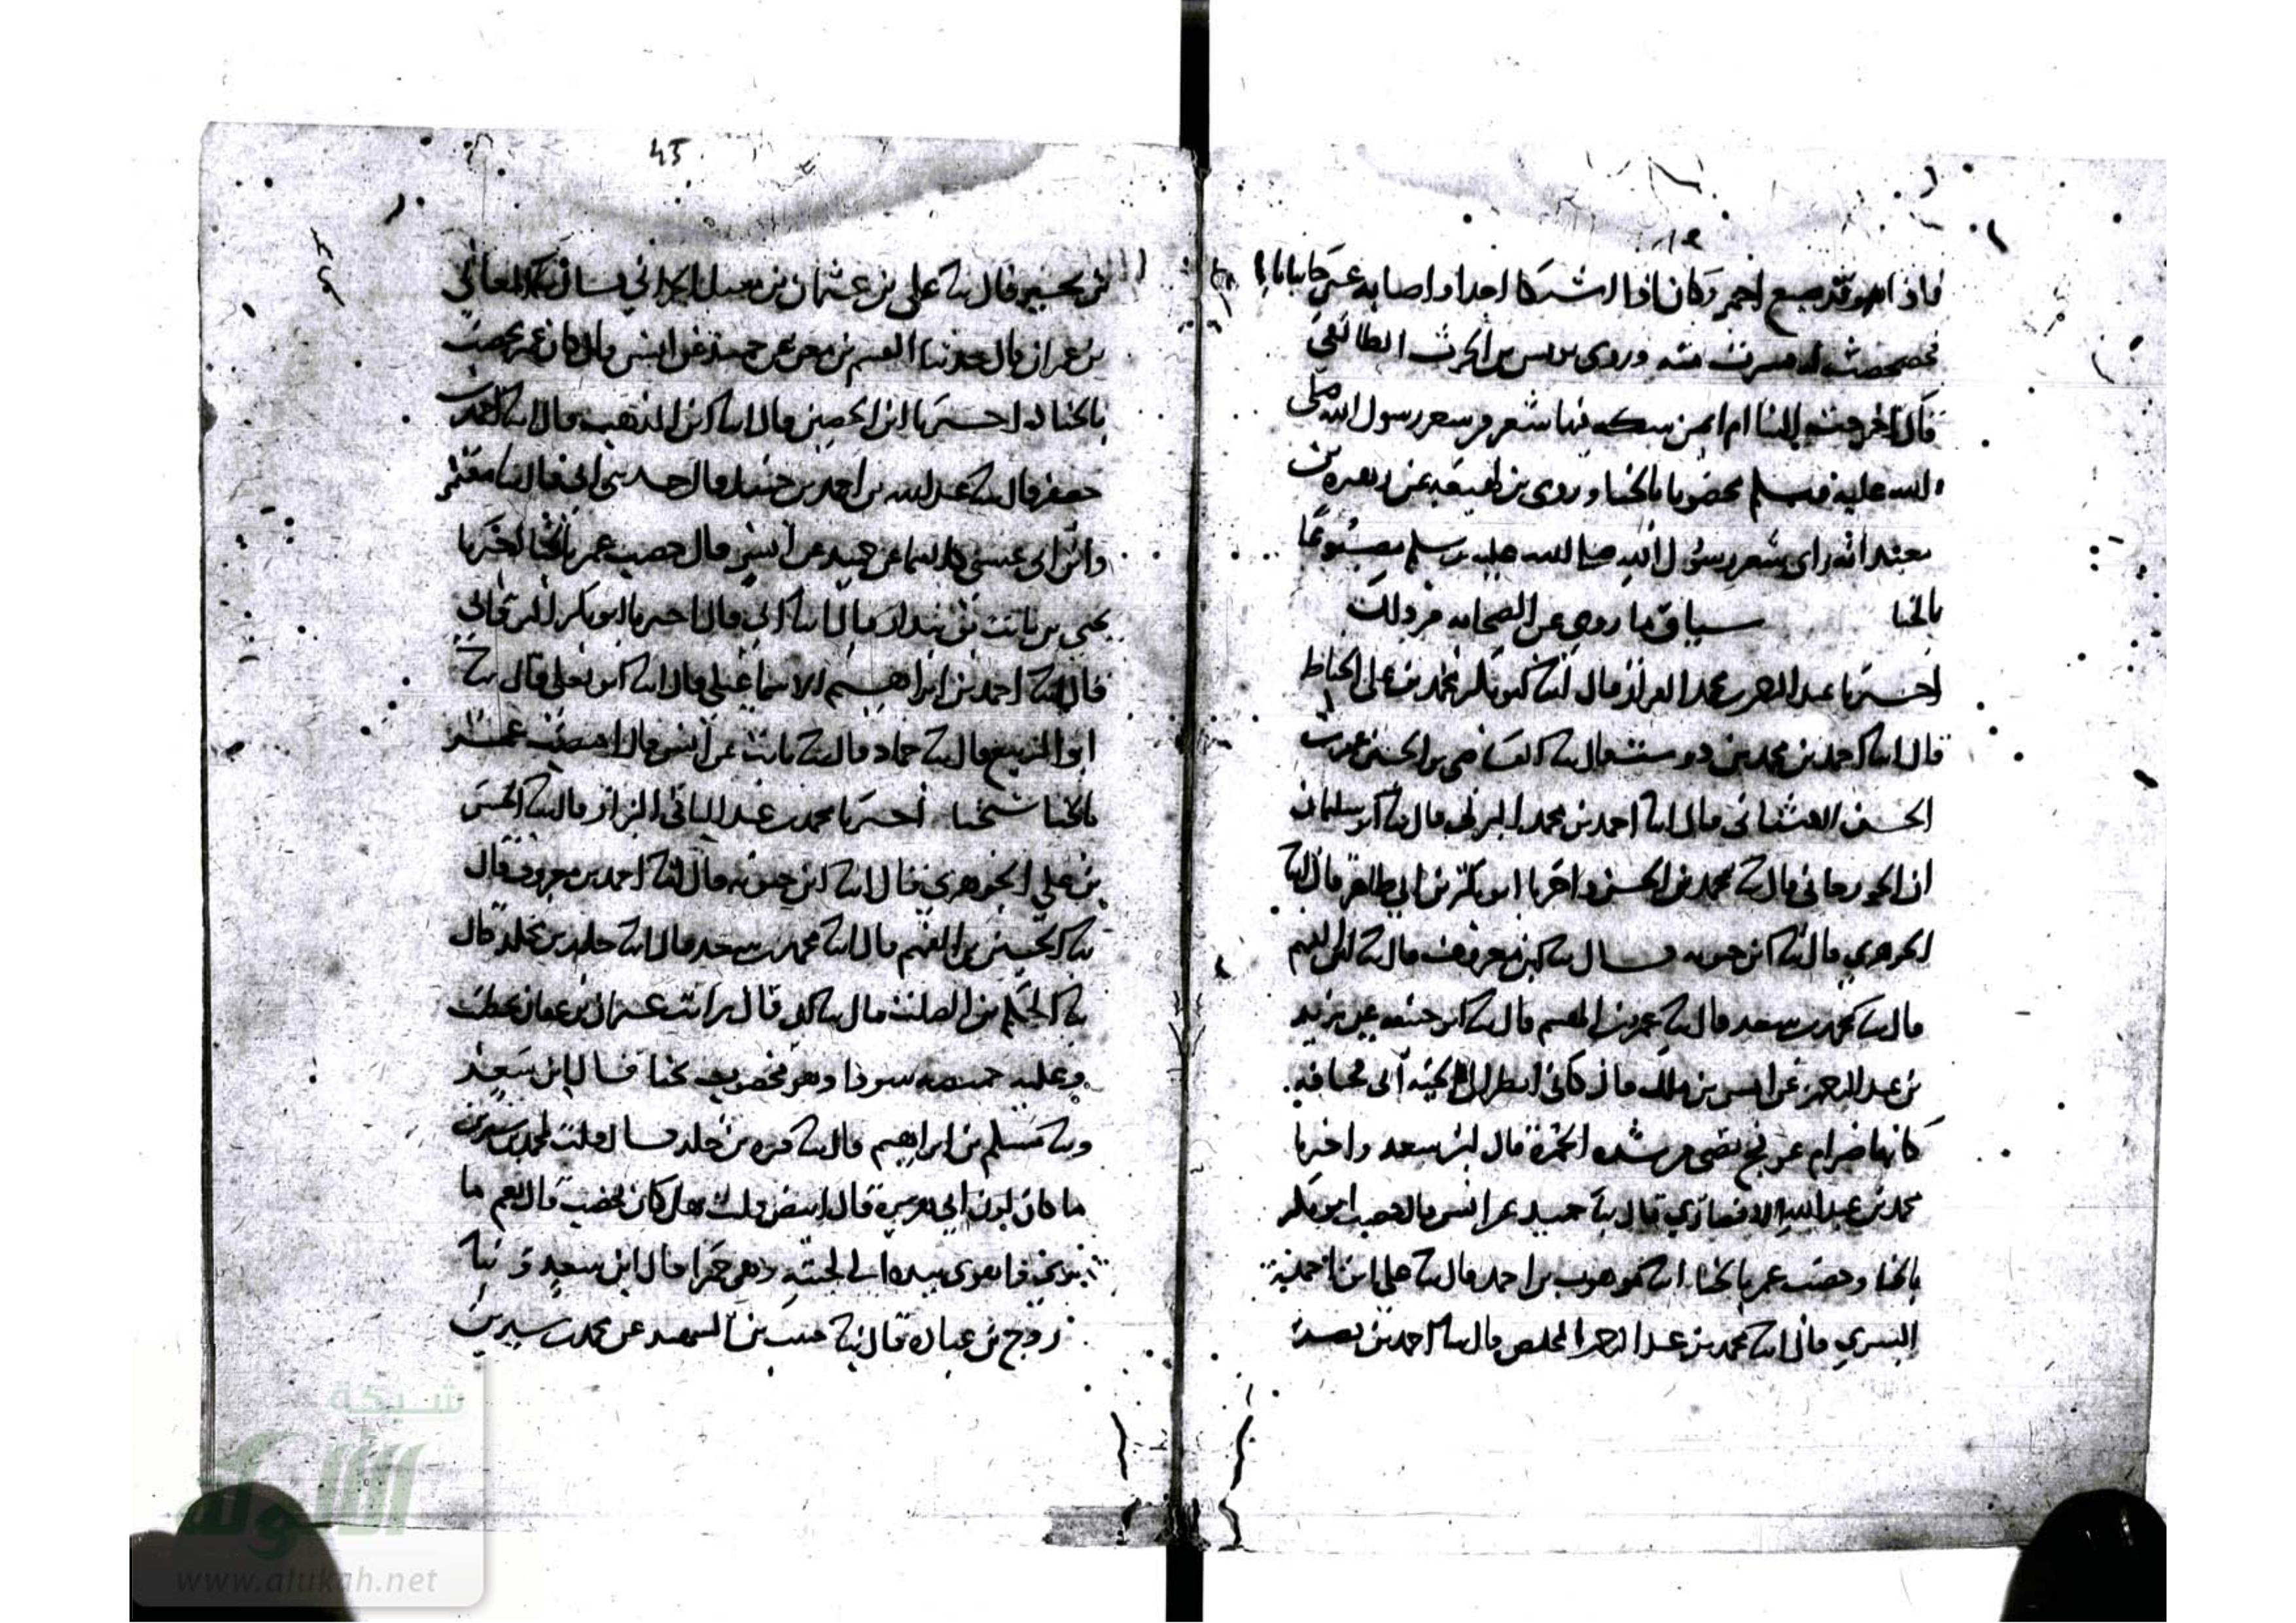 فاذا هو قد صبغ احمر وكان اذا اشتكا احدا و اصابه عين جا باناء
فخضخضت له فشرب منه وروى يونس بن الحرث الطائفي
قال اخرجت الينا ام ايمن سكه فيها شعر من شعر رسول الله صلى
الله عليه وسلم مخضوبا بالحنا وروى بن لهيعه عن زهره بن
معبد انه راى شعر رسول الله صلى الله عليه وسلم مصبوغا
بالحنا سياق ما روي عن الصحابه من ذلك
اخبرنا عبد الرحمن بن محمد القزاز قال ابنا ابو بكر محمد بن على الخياط
قال ابنا احمد بن محمد بن دوست قال بنا القاضي بن الحسن عمر بن
الحسن الاشناني قال ابنا احمد بن محمد البرتي قال بنا ابو سليمان
الجورجاني قال بنا محمد بن الحسن واخبرنا ابو بكر بن ابي طاهر قال ابنا
الجوهري قال ابنا ابن حيويه قال بنا ابن معروف قال بنا ابن الفهم
قال بنا محمد بن سعد قال بنا عمرو بن الهيثم قال بنا ابو حنيفه عن يزيد
بن عبد الرحمن عن انس بن ملك قال كاني انظر الى لحية ابي قحافه
كانها ضرام عرفج يعني من شده الحمرة قال ابن سعد واخبرنا
محمد بن عبد الله الانصاري قال بنا حميد عن انس قال خضب ابو بكر
بالحنا وخضب عمر بالحنا ابنا موهوب بن احمد قال بنا علي بن احمد بن
البسري قال ابنا محمد بن عبد الرحمن المخلص قال بنا احمد بن نصر
45
بن بحير قال بنا على بن عثمان بن نفيل الحراني قال بنا المعافى
بن عمران قال حدثنا القسم بن معن عن حميد عن انس قال كان عمر يخضب
بالحنا اخبرنا ابن الحصين قال ابنا ابن المذهب قال ابنا احمد بن
جعفر قال بنا عبد الله بن احمد بن حنبل قال حدثني ابي قال بنا معتمر
وابن ابي عدي كلاهما عن حميد عن انس قال خضب عمر بالحنا اخبرنا
يحيى بن ثابت بن بندار قال ابنا ابي قال اخبرنا ابو بكر البرقاني
قال ابنا احمد بن ابراهيم الاسماعيلي قال ابنا ابو يعلى قال بنا
ابو الربيع قال بنا حماد قال بنا ثابت عن انس قال اختضب عمر
بالحنا اخبرنا محمد بن عبد الباقي البزاز قال بنا الحسن
بن علي الجوهري قال ابنا ابن حيويه قال ابنا احمد بن معروف قال
بنا الحسين بن الفهم قال ابنا محمد بن سعد قال ابنا خلد بن مخلد قال
بنا الحكم بن الصلت قال بنا ابي قال رايت عثمان بن عفان يخطب
وعليه خميصه سودا وهو مخضوب بحنا قال ابن سعد
وبنا مسلم بن ابراهيم قال بنا قره بن خلد قال قلت لمحمد بن سيرين
ما كان لون ابي هريرة قال ابيض قلت هل كان يخضب قال نعم ما
ترى فاهوى بيده الى لحيته وهي حمرا قال ابن سعد و بنا
روح بن عباده قال بنا حبيب بن الشهيد عن محمد بن سيرين
شبكة
الألوكة
www.alukah.net